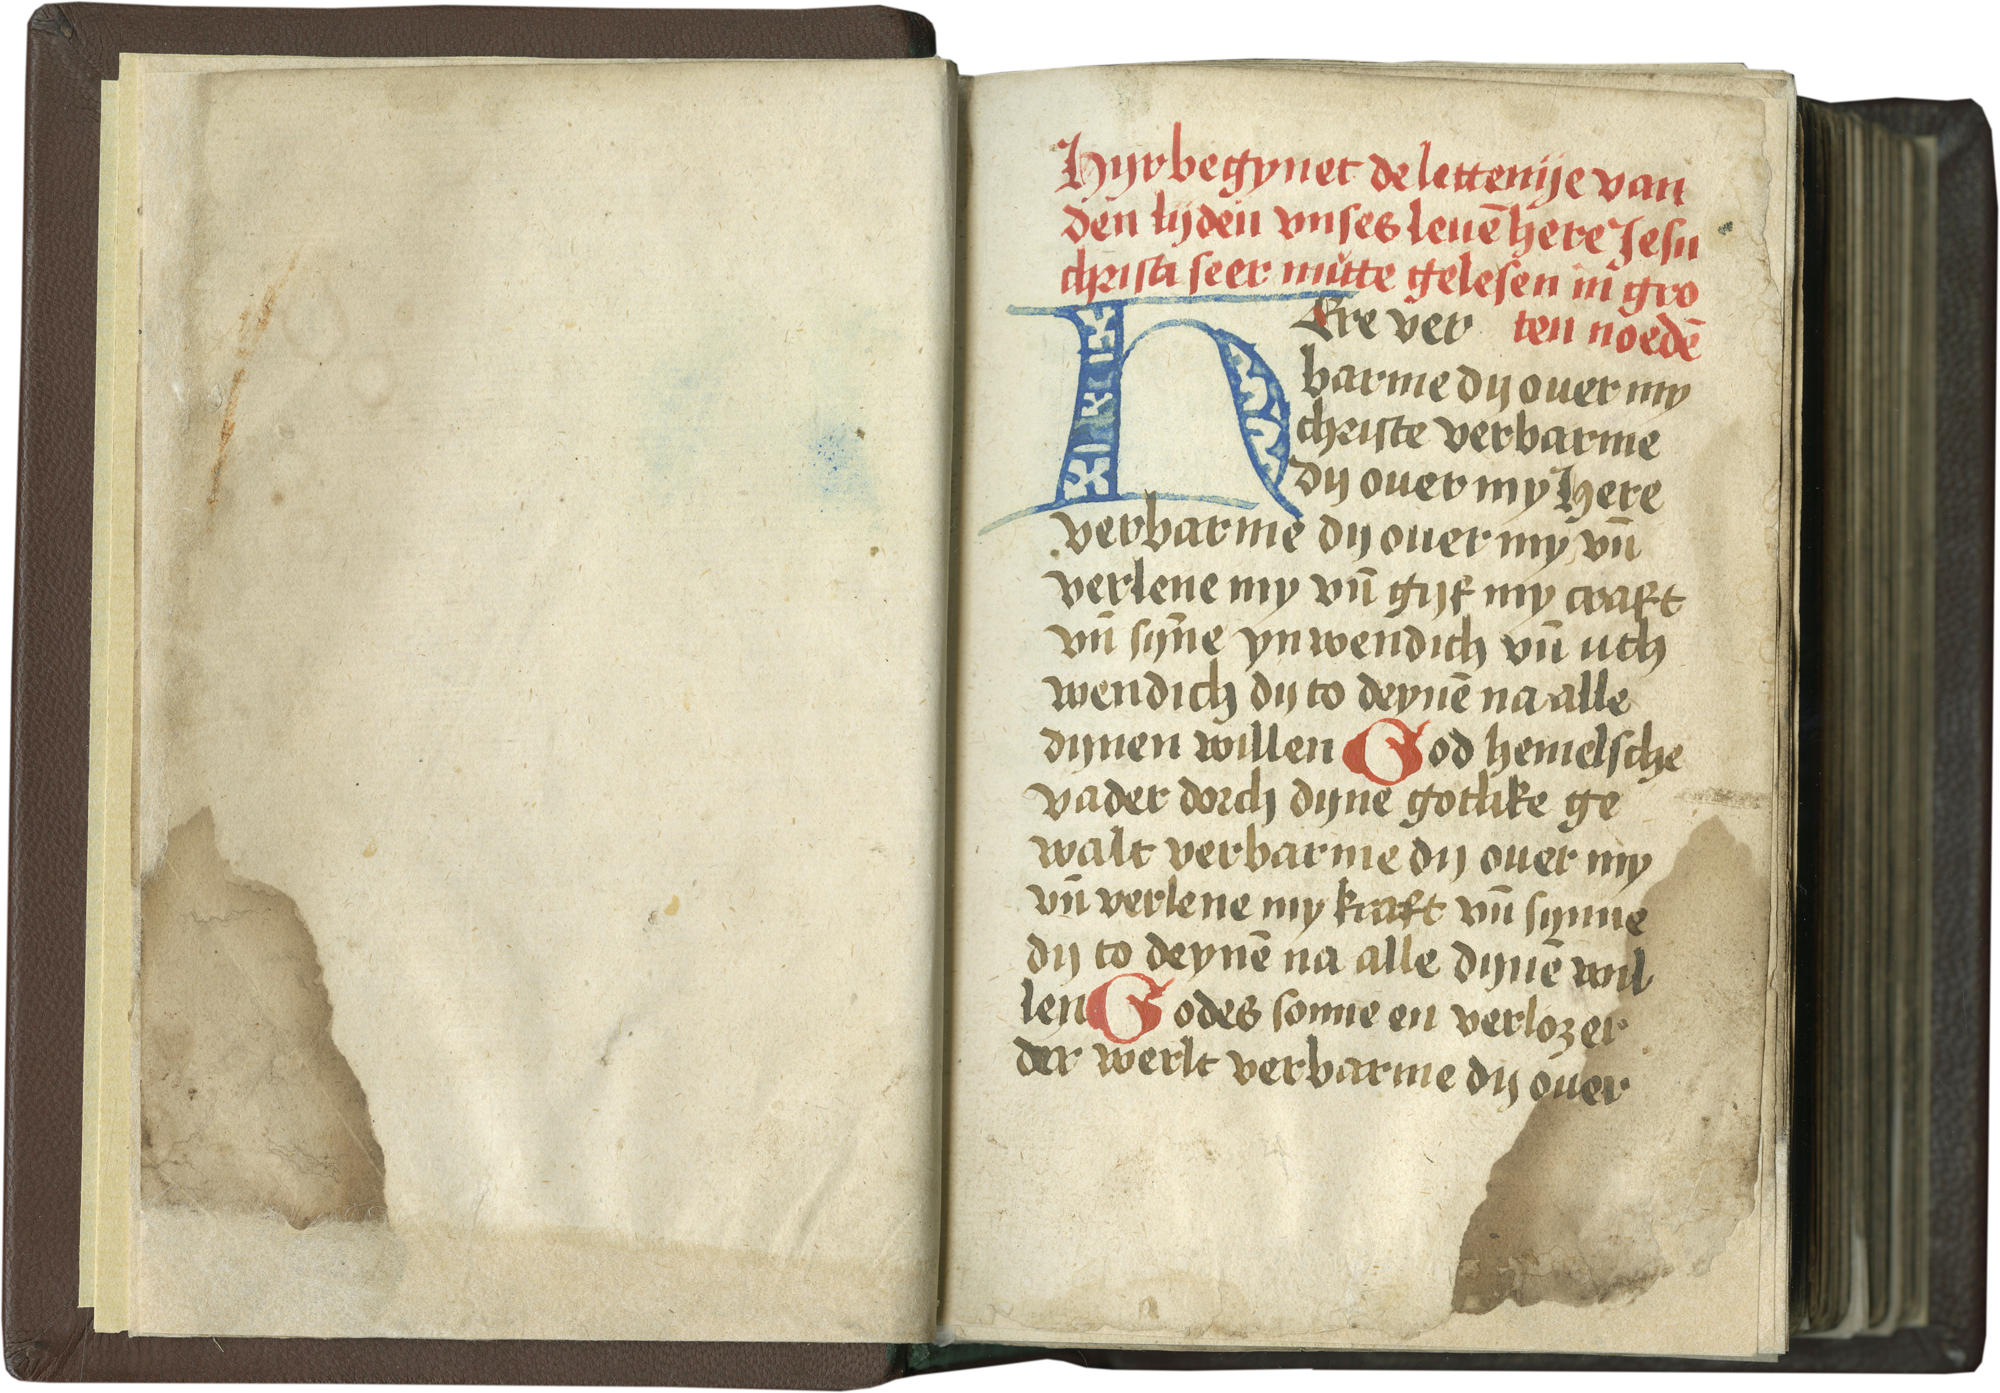 Hyr begynet de lettenije van
den lijden vnses leuē here Jesu
christi seer nutte gelesen in gro
ten noedē
HEre ver
barme dij ouer my
christe verbarme
dij ouer my Here
verbarme dij ouer my vn̄
verlene my vn̄ gijf my craft
vn̄ sijn̄e ynwendich vn̄ uth
wendich dij to deynē na alle
dijnen willen God hemelsche
vader dorch dijne gotlike ge
walt verbarme dij ouer my
vn̄ verlene my kraft vn̄ synne
dij to deynē na alle dijnē wil
len Godes sonne en verlozer
der werlt verbarme dij ouer